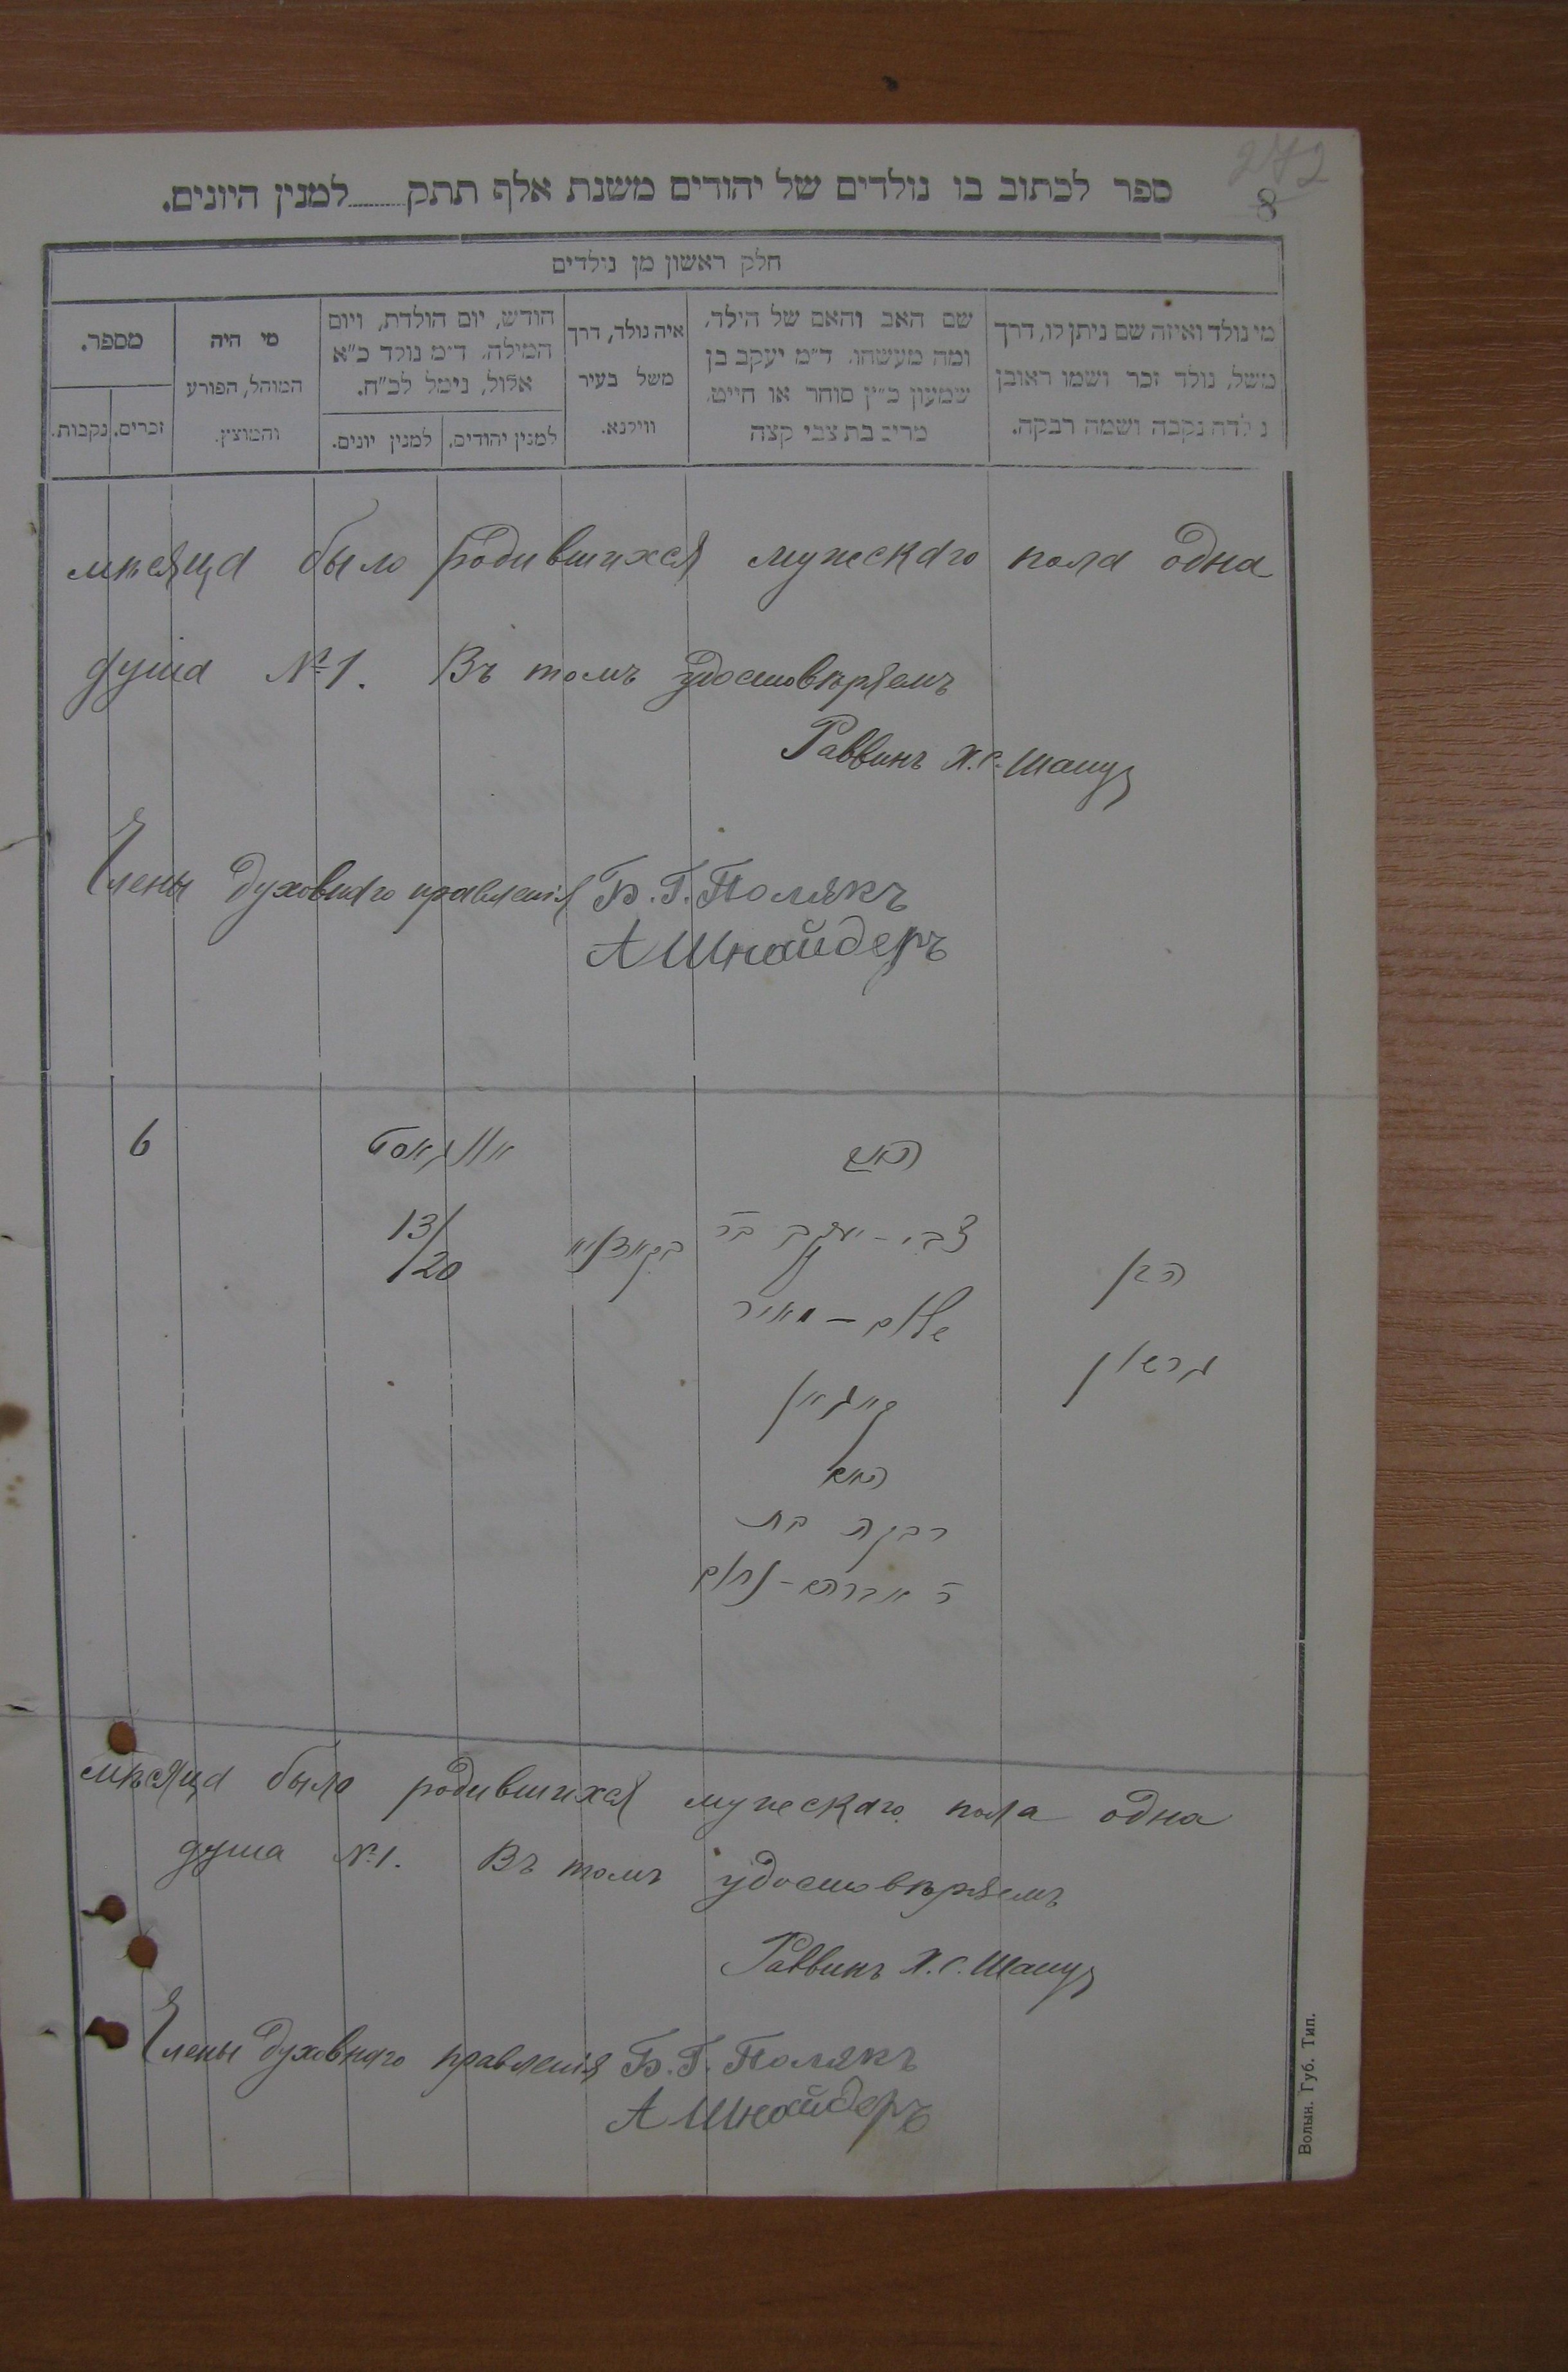 272
8
ספר לכתוב בו נולדים של יהודים משנת אלף תתק......למנין היונים.
חלק ראשון מן נולדים
מי נולד ואיזה שם ניתן לו, דרך
משל, נולד זכר ושמו ראובן
נולדה נקבה ושמה רבקה.
שם האב והאם של הילד,
ומה מעשהו. ד״מ יעקב בן
שמעון כ״ץ סוחר או חייט.
מרים בת צבי קצה
איה נולד, דרך
משל בעיר
ווילנא.
חודש, יום הולדת, ויום
המילה. ד״מ נולד כ״א
אלול, נימל לכ״ח.
למנין יהודים.
למנין יונים.
מי היה
המוהל, הפורע
והמוצץ.
מספר.
זכרים.
נקבות.
мѣсяца было родившихся мужескаго пола одна
душа №1. Въ томъ удостовѣряемъ
Раввинъ Х.С. Шапу
Члены духовнаго правленія Б. Г. Полякъ
А Шнайдеръ
הבן
גרשון
האב
צבי - יעקב בר
שלום - מאיר
קאגאן
האם
רבקה בת
ר אברהם - נחום
אוגוסט
13/20
6
мѣсяца было родившихся мужескаго пола одна
душа №1. Въ томъ удостовѣряемъ
Раввинъ Х.С. Шапу
Члены духовнаго правленія Б. Г. Полякъ
А Шнайдеръ
Волын. Губ. Тип.